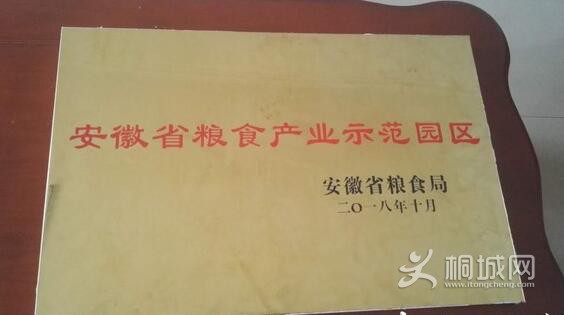 安徽省粮食产业示范园区
安徽省粮食局
二〇一八年十月
桐城网
www.itongcheng.com